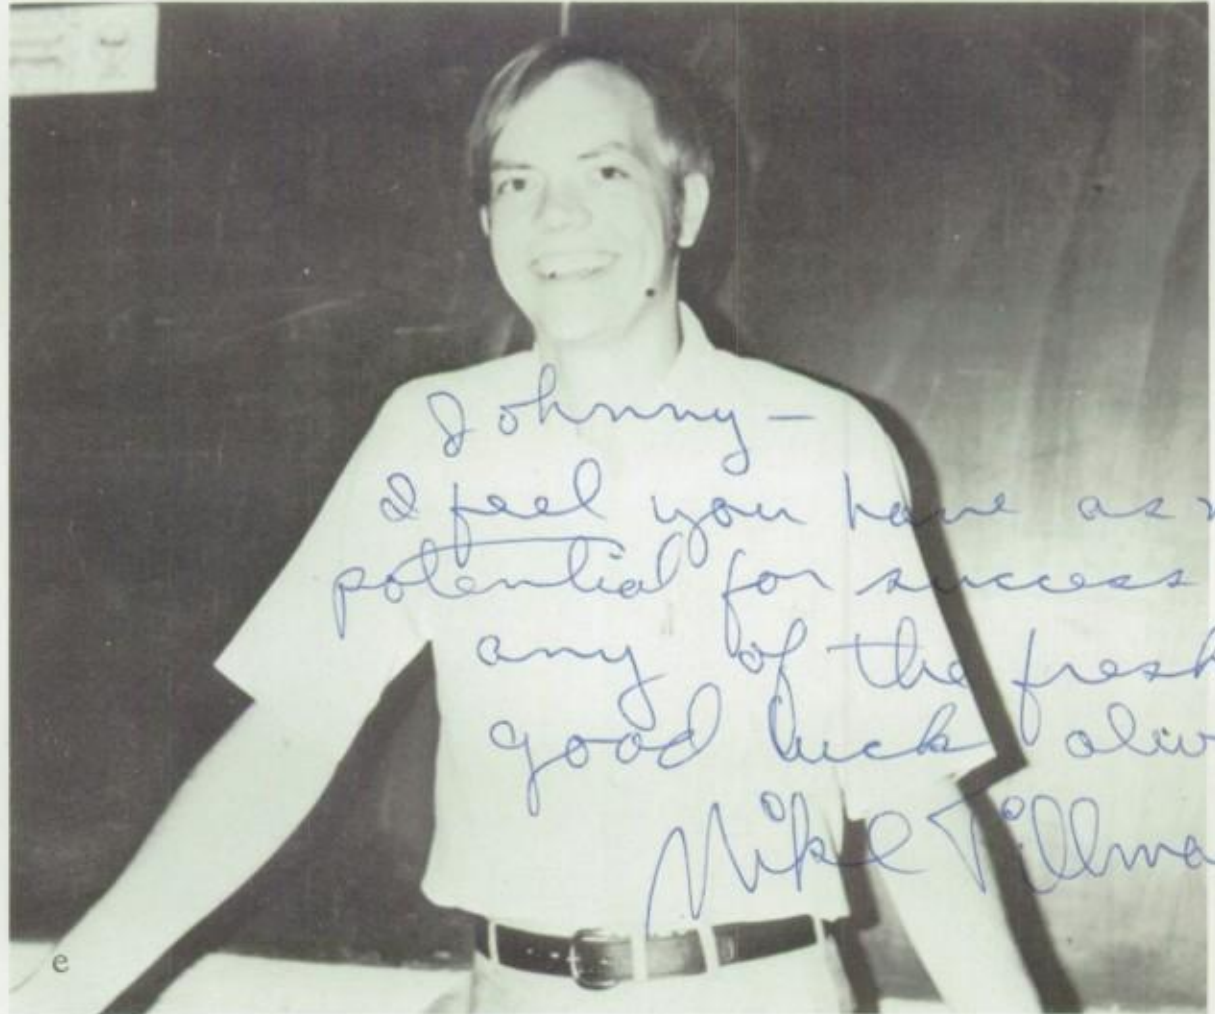 Johnny -
I feel you have as
potential for success
any of the fresh
good luck alw
Mike Tillma
e